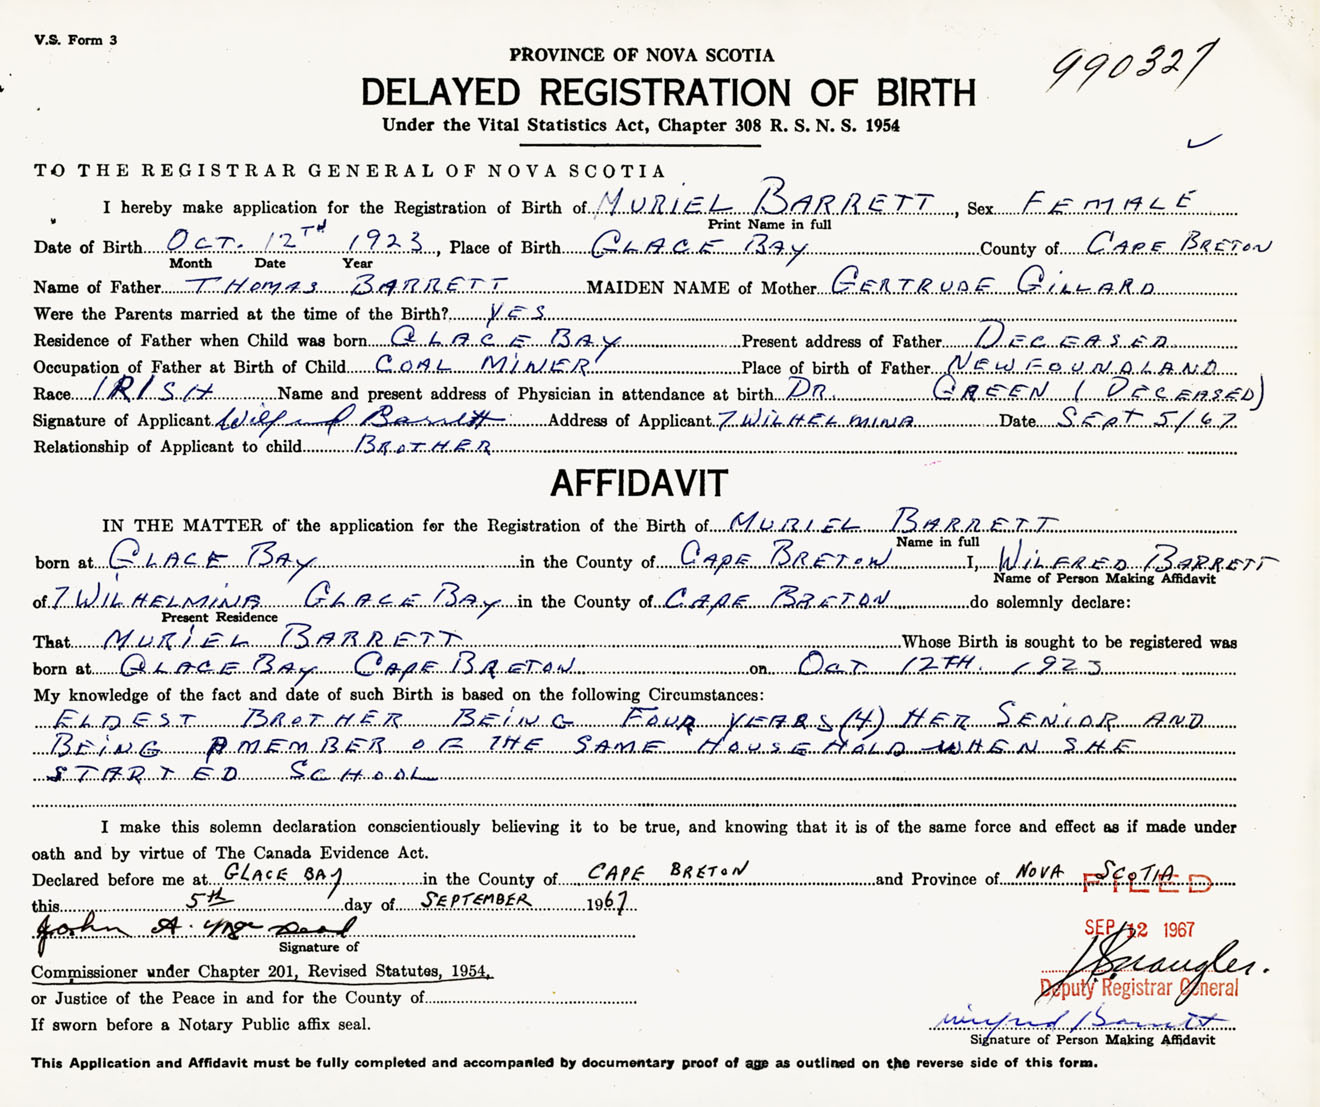 V.S. Form 3
PROVINCE OF NOVA SCOTIA
990327
DELAYED REGISTRATION OF BIRTH
Under the Vital Statistics Act, Chapter 308 R. S. N. S. 1954
TO THE REGISTRAR GENERAL OF NOVA SCOTIA
I hereby make application for the Registration of Birth of MURIEL BARRETT, Sex FEMALE
Print Name in full
Date of Birth OCT. 12TH 1923, Place of Birth GLACE BAY County of CAPE BRETON
Month Date Year
Name of Father THOMAS BARRETT MAIDEN NAME of Mother GERTRUDE GILLARD
Were the Parents married at the time of the Birth? YES
Residence of Father when Child was born GLACE BAY Present address of Father DECEASED
Occupation of Father at Birth of Child COAL MINER Place of birth of Father NEWFOUNDLAND
Race IRISH Name and present address of Physician in attendance at birth DR. GREEN (DECEASED)
Signature of Applicant Wilfred Barrett Address of Applicant 7 WILHELMINA Date SEPT 5/67
Relationship of Applicant to child BROTHER
AFFIDAVIT
IN THE MATTER of the application for the Registration of the Birth of MURIEL BARRETT
Name in full
born at GLACE BAY in the County of CAPE BRETON I, WILFRED BARRETT
Name of Person Making Affidavit
of 7 WILHELMINA GLACE BAY in the County of CAPE BRETON do solemnly declare:
Present Residence
That MURIEL BARRETT Whose Birth is sought to be registered was
born at GLACE BAY CAPE BRETON on OCT 12TH. 1923
My knowledge of the fact and date of such Birth is based on the following Circumstances:
ELDEST BROTHER BEING FOUR YEARS (4) HER SENIOR AND
BEING A MEMBER OF THE SAME HOUSEHOLD WHEN SHE
STARTED SCHOOL
I make this solemn declaration conscientiously believing it to be true, and knowing that it is of the same force and effect as if made under
oath and by virtue of The Canada Evidence Act.
Declared before me at GLACE BAY in the County of CAPE BRETON and Province of NOVA SCOTIA
FILED
this 5th day of SEPTEMBER 1967
SEP 12 1967
John A.
Signature of
Commissioner under Chapter 201, Revised Statutes, 1954,
Deputy Registrar General
or Justice of the Peace in and for the County of
If sworn before a Notary Public affix seal.
Wilfred Barrett
Signature of Person Making Affidavit
This Application and Affidavit must be fully completed and accompanied by documentary proof of age as outlined on the reverse side of this form.